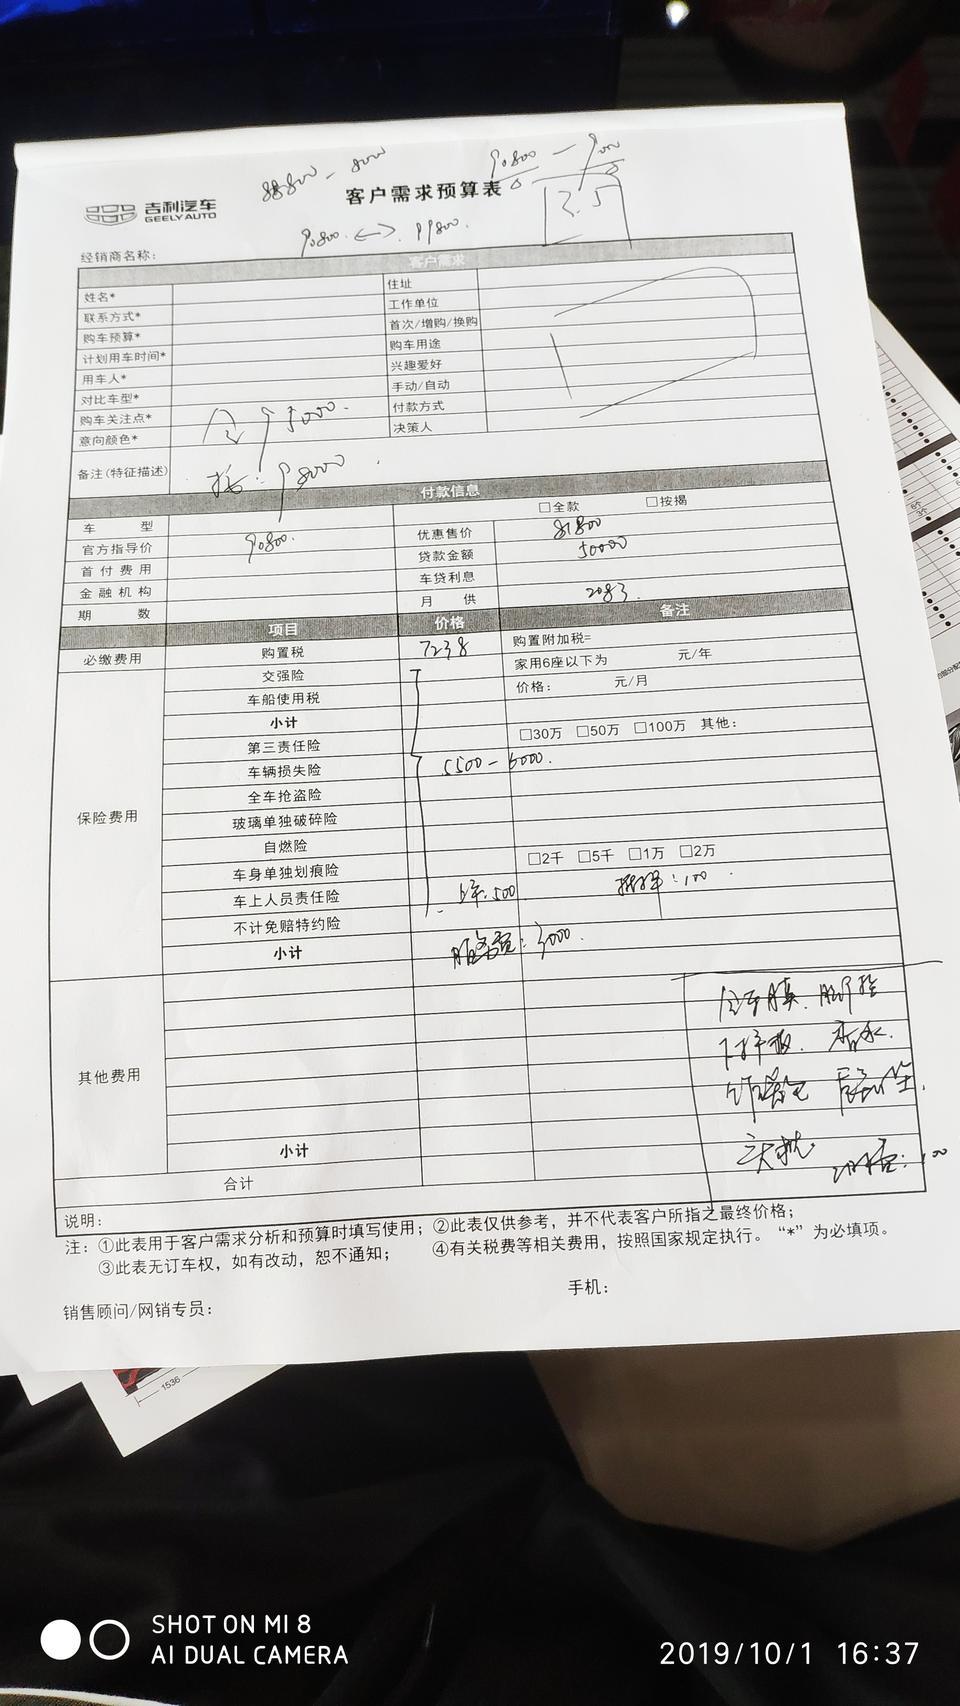 88800 - 8000
90800 - 9000
吉利汽车
GEELY AUTO
客户需求预算表
3.5
90800 <-> 99800.
经销商名称：
客户需求
姓名* 住址
联系方式* 工作单位
购车预算* 首次/增购/换购
计划用车时间* 购车用途
用车人* 兴趣爱好
对比车型* 手动/自动
购车关注点* 付款方式
意向颜色* 决策人
全 95000.
备注(特征描述) 按：98000.
付款信息
车型 □全款 □按揭
官方指导价 90800. 优惠售价 81800
首付费用 贷款金额 50000
金融机构 车贷利息
期数 月供 2083.
项目 价格 备注
必缴费用 购置税 7238 购置附加税=
交强险 家用6座以下为 元/年
车船使用税 价格： 元/月
小计
第三责任险 □30万 □50万 □100万 其他：
车辆损失险 5500-6000.
全车抢盗险
保险费用 玻璃单独破碎险
自燃险
车身单独划痕险 □2千 □5千 □1万 □2万
车上人员责任险 上牌.500 :100.
不计免赔特约险
小计 服务费：3000.
全车膜.脚垫
香水.
其他费用
小计
合计
说明：
注：①此表用于客户需求分析和预算时填写使用；②此表仅供参考，并不代表客户所指之最终价格；
③此表无订车权，如有改动，恕不通知； ④有关税费等相关费用，按照国家规定执行。“*”为必填项。
手机：
销售顾问/网销专员：
1536
SHOT ON MI 8
AI DUAL CAMERA
2019/10/1 16:37